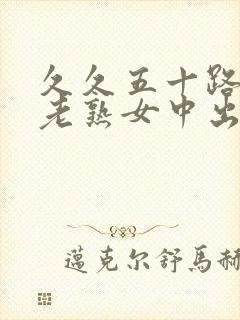 久久五十路
老熟女中出
邁克尔舒馬赫